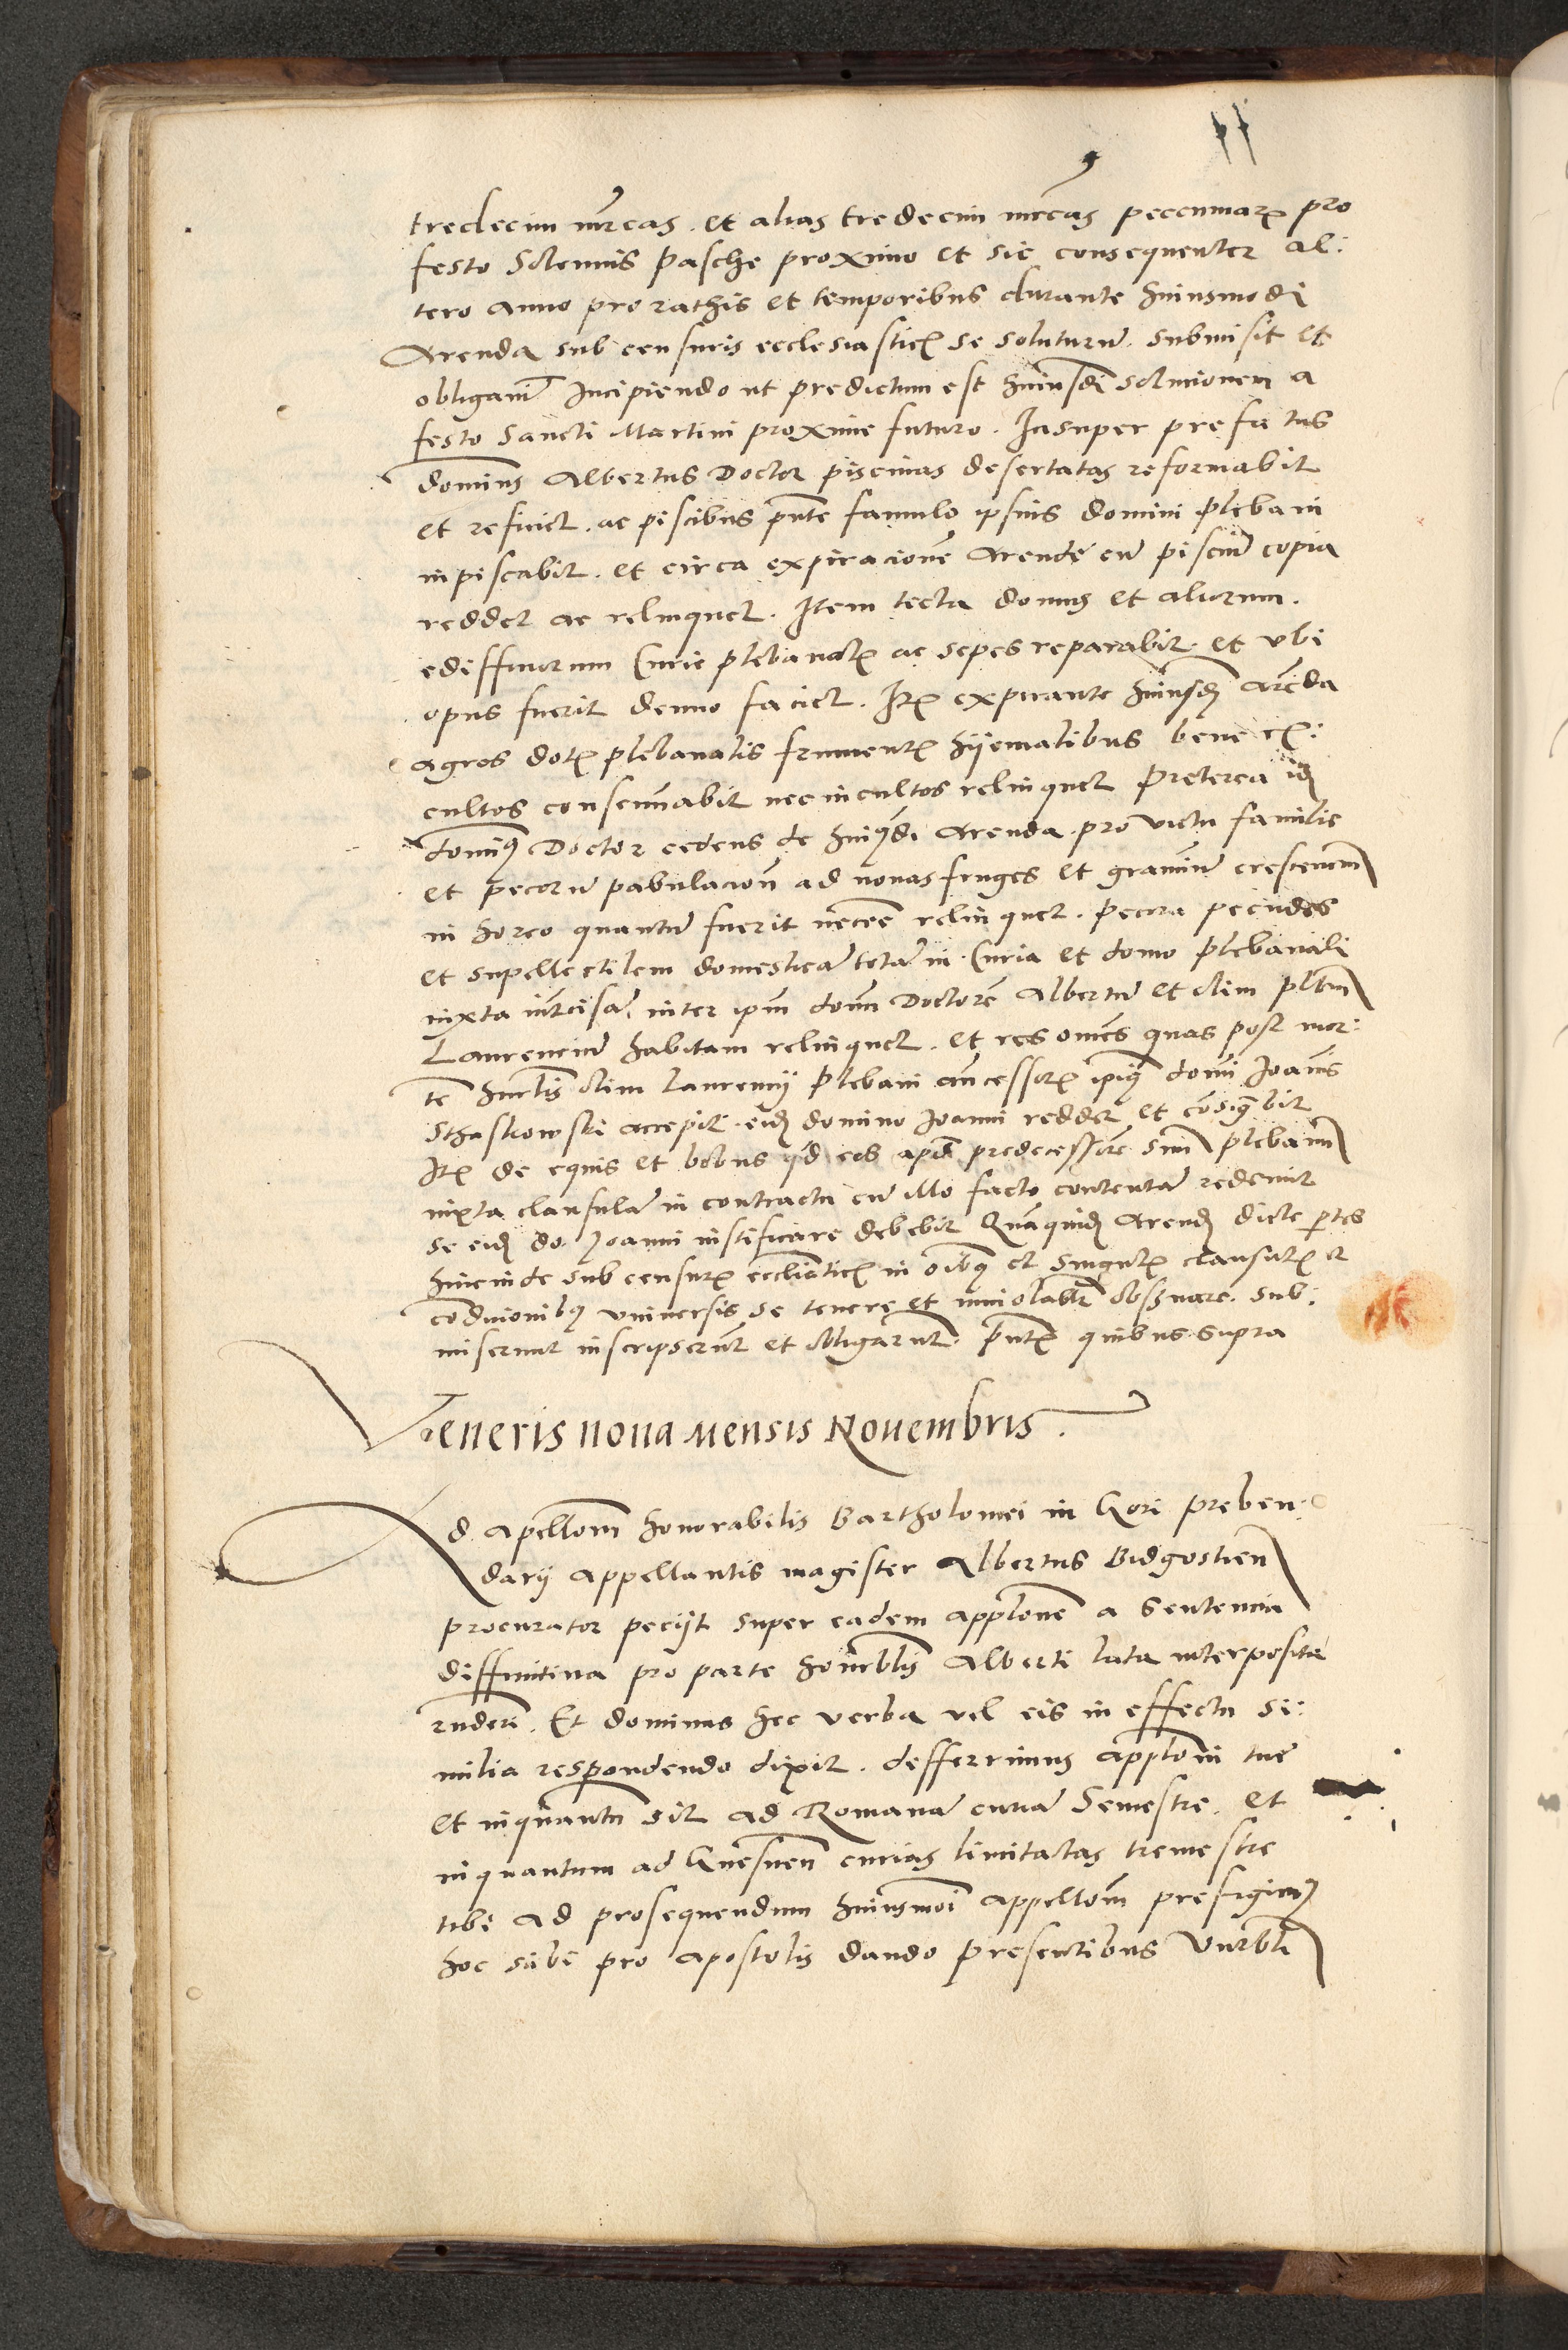 tredecim mrcas. et alias tredecim mrcas pecuniarꝝ pro
festo Solennis pasche proximo et sic consequenter al:
tero anno pro rathis et temporibus durante huiusmodi
Arenda sub censuris ecclesiasticꝭ se soluturū. submisit et
obligauit Incipiendo ut predictum est huiusdi solucionem a
festo Sancti Martini proxime futuro. Insuper prefatus
dominus Albertus Doctor piscinas desertatas reformabit
et reficiet. ac piscibus pñte famulo ipsius domini plebani
inpiscabit. et circa expiracionē Arende cū pisciū copia
reddet ac relinquet. Item tecta domus et aliorum.
ediffitiorum Curie plebanalꝭ ac sepes reparabit. et vbi
opus fuerit denuo faciet. Itꝫ expirante huiusdꝫ arēda
agros dotꝭ plebanalis frumentꝭ hijematibus bene ex:
cultos conseruabit nec incultos relinquet Preterea idꝫ
dominꝰ Doctor cedens de huiꝰdi Arenda. pro victu familie
et pecorū pabulacioñ ad nouas fruges et graminū crescenciā
in horreo quantū fuerit necēē relinquet. pecora pecudes
et supellectilem domesticā totā in Curia et domo plebanali
iuxta incisā inter ipm̄ dom̄ Doctorē Albertū et olim plbm̄
Laurenciū habitam relinquet. et res om̄es quas post mor:
tē hūrlis olim Laurencij plebani ancessorꝭ ipiꝰ domi Joānis
Sthaskowski accepit. eidꝫ domino Joanni reddet et consignabit
Itꝫ de equis et bobus qd eos apud predecessorē suū plebanū
iuxta clausulā in contractu cū illo facto contentā redemit
se eidꝫ do. Joanni iustificare debebit Quāquidꝫ Arendꝫ dicte ptes
hincinde sub censurꝭ eccliasticꝭ in oībꝰ et singulꝭ clausulꝭ et
condicionibꝰ vniuersis se tenere et inuiolabꝉr obseruare. sub:
miserunt inscripserūt et obligarūt. pñtꝭ quibus supra
Veneris nona mensis Nouembris.
Ad appellom̄ honorabilis Bartholomei in Gori preben:
darij appellantis magister Albertus Bidgostien̄
procurator pecijt super eadem applonē a sentencia
diffinitiua pro parte honorblis Alberti lata interposita
rnderi. Et dominus hec verba vel eis in effectu si:
milia respondendo dixit. defferrimus applom̄ tue
et inquantū sit ad Romanā curiā Semestre. et
inquantum ad Gnesnen̄ curias limitatas tremestre
tibi ad prosequendum huiusmoi appellom̄ prefigimꝰ
hoc sibi pro apostolis dando presentibus Vnrbli